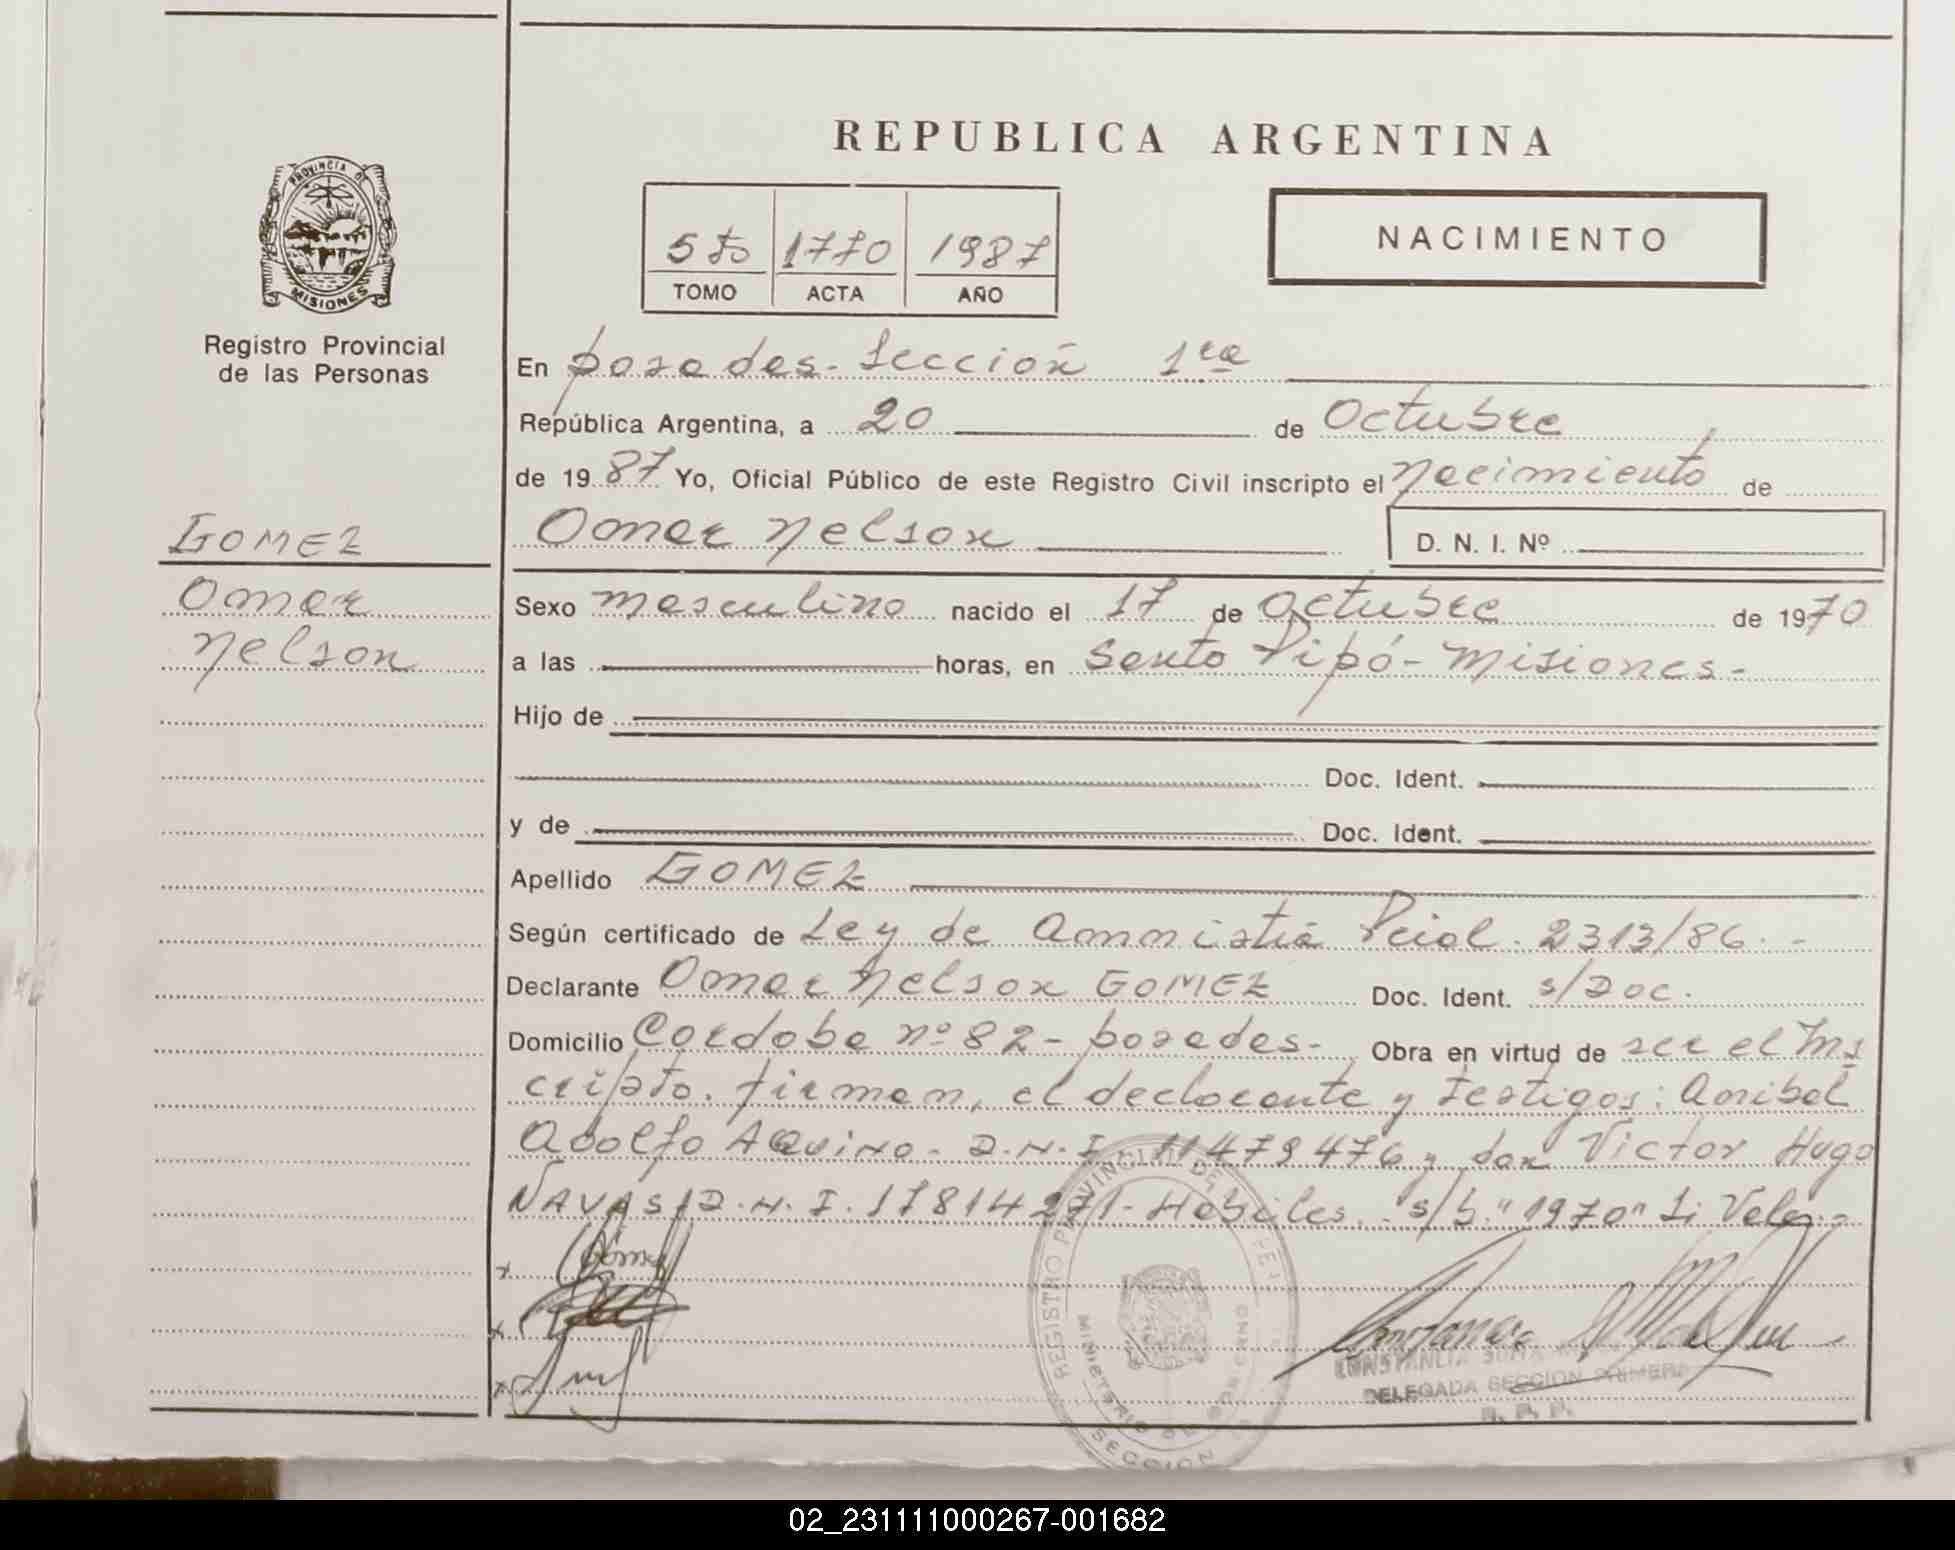 REPUBLICA ARGENTINA
PROVINCIA DE
MISIONES
Registro Provincial
de las Personas
5to 1770 1987
TOMO ACTA AÑO
NACIMIENTO
En posadas - Sección 1ra
República Argentina, a 20 de Octubre
de 1987 Yo, Oficial Público de este Registro Civil inscripto el Nacimiento de
GOMEZ
Omar Nelson
Omar Nelson D. N. I. Nº
Sexo masculino nacido el 17 de octubre de 1970
a las horas, en Santo Pipó - Misiones -
Hijo de
Doc. Ident.
y de Doc. Ident.
Apellido GOMEZ
Según certificado de Ley de Amnistiá Pcial. 2313/86. -
Declarante Omar Nelson GOMEZ Doc. Ident. s/Doc.
Domicilio Cordoba nº 82 - posadas - Obra en virtud de ser el Ins
cripto. firman, el declarante y testigos: Anibal
Adolfo AQuino - D.N.I. 11479476 y don Victor Hugo
NAVAS D.N.I. 17814271 - Habiles. s/b. "1970" Si Vale. -
Gómez
REGISTRO PROVINCIAL DE
MINISTERIO DE GOBIERNO
SECCION
CONSTANCIA
DELEGADA SECCION PRIMERA
R. P. P.
02_231111000267-001682